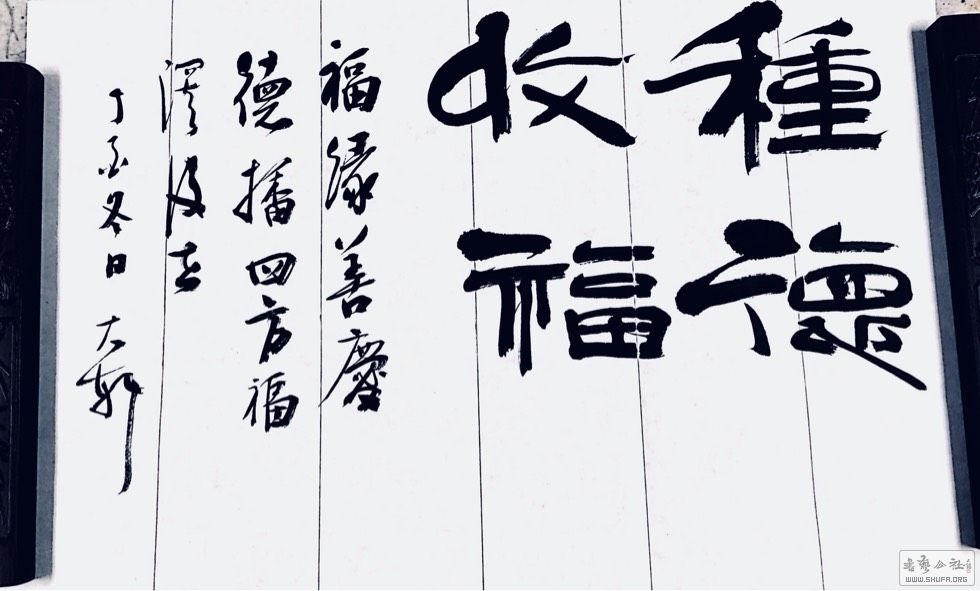 種德
收福
福緣善慶
德播四方福
澤後世
丁酉冬日 大軒
WWW.SHUFA.ORG